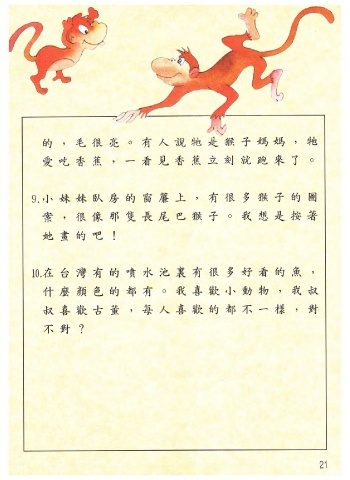 的，毛很亮。有人說牠是猴子媽媽，牠
愛吃香蕉，一看見香蕉立刻就跑來了。
9.小妹妹臥房的窗簾上，有很多猴子的圖
案，很像那隻長尾巴猴子。我想是按著
她畫的吧！
10.在台灣有的噴水池裏有很多好看的魚，
什麼顏色的都有。我喜歡小動物，我叔
叔喜歡古董，每人喜歡的都不一樣，對
不對？
21